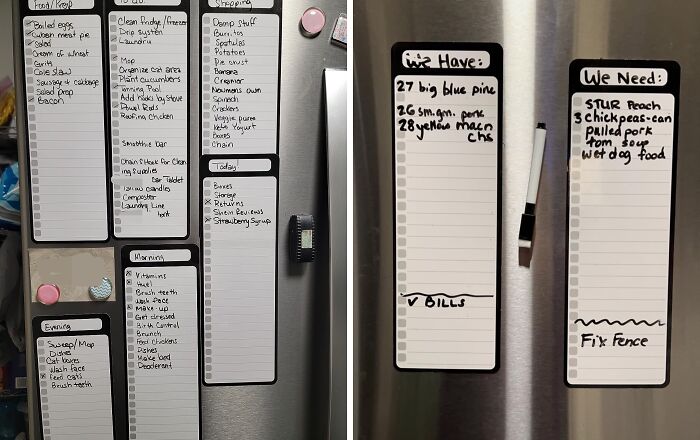 Food/Prep
Boiled eggs
Cuban meat pie
Salad
Cream of wheat
Grits
Cole slaw
Sausage & cabbage
Salad prep
Bacon
To Do:
Clean fridge/freezer
Drip system
Laundry
Mop
Organize cat area
Plant cucumbers
Tanning Pool
Add hooks by stove
Towel Rods
Roofing Chicken
Smoothie bar
Chain & Hook for Clean
ing supplies
Car Tablet
candles
Composter
Laundry Line
Shopping
Damp stuff
Burritos
Spatulas
Potatoes
Pie crust
Banana
Creamer
Newmans own
Spinach
Crackers
Veggie puree
Keto Yogurt
Boxes
Chain
Today!
Boxes
Storage
Returns
Shein Reviews
Strawberry Syrup
Morning
Vitamins
Brush teeth
Wash face
Make-up
Get dressed
Birth Control
Brunch
Feed chickens
Dishes
Make bed
Deodorant
Evening
Sweep/Mop
Dishes
Cat boxes
Wash face
Feed cats
Brush teeth
We Have:
27 big blue pine
26 sm. grn. pork
28 yellow macn
chs
✓ BILLS
We Need:
STUR Peach
3 chickpeas-can
pulled pork
tom soup
wet dog food
Fix Fence